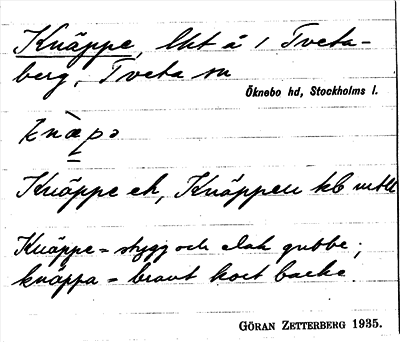 Knäppe, lht å 1 Tveta-
berg, Tveta sn
Öknebo hd, Stockholms l.
knæ̀pə
Knäppe ek, Knäppen kb mtlk
Knäppe = stygg och elak gubbe;
knäppa = brant kort backe.
GÖRAN ZETTERBERG 1935.